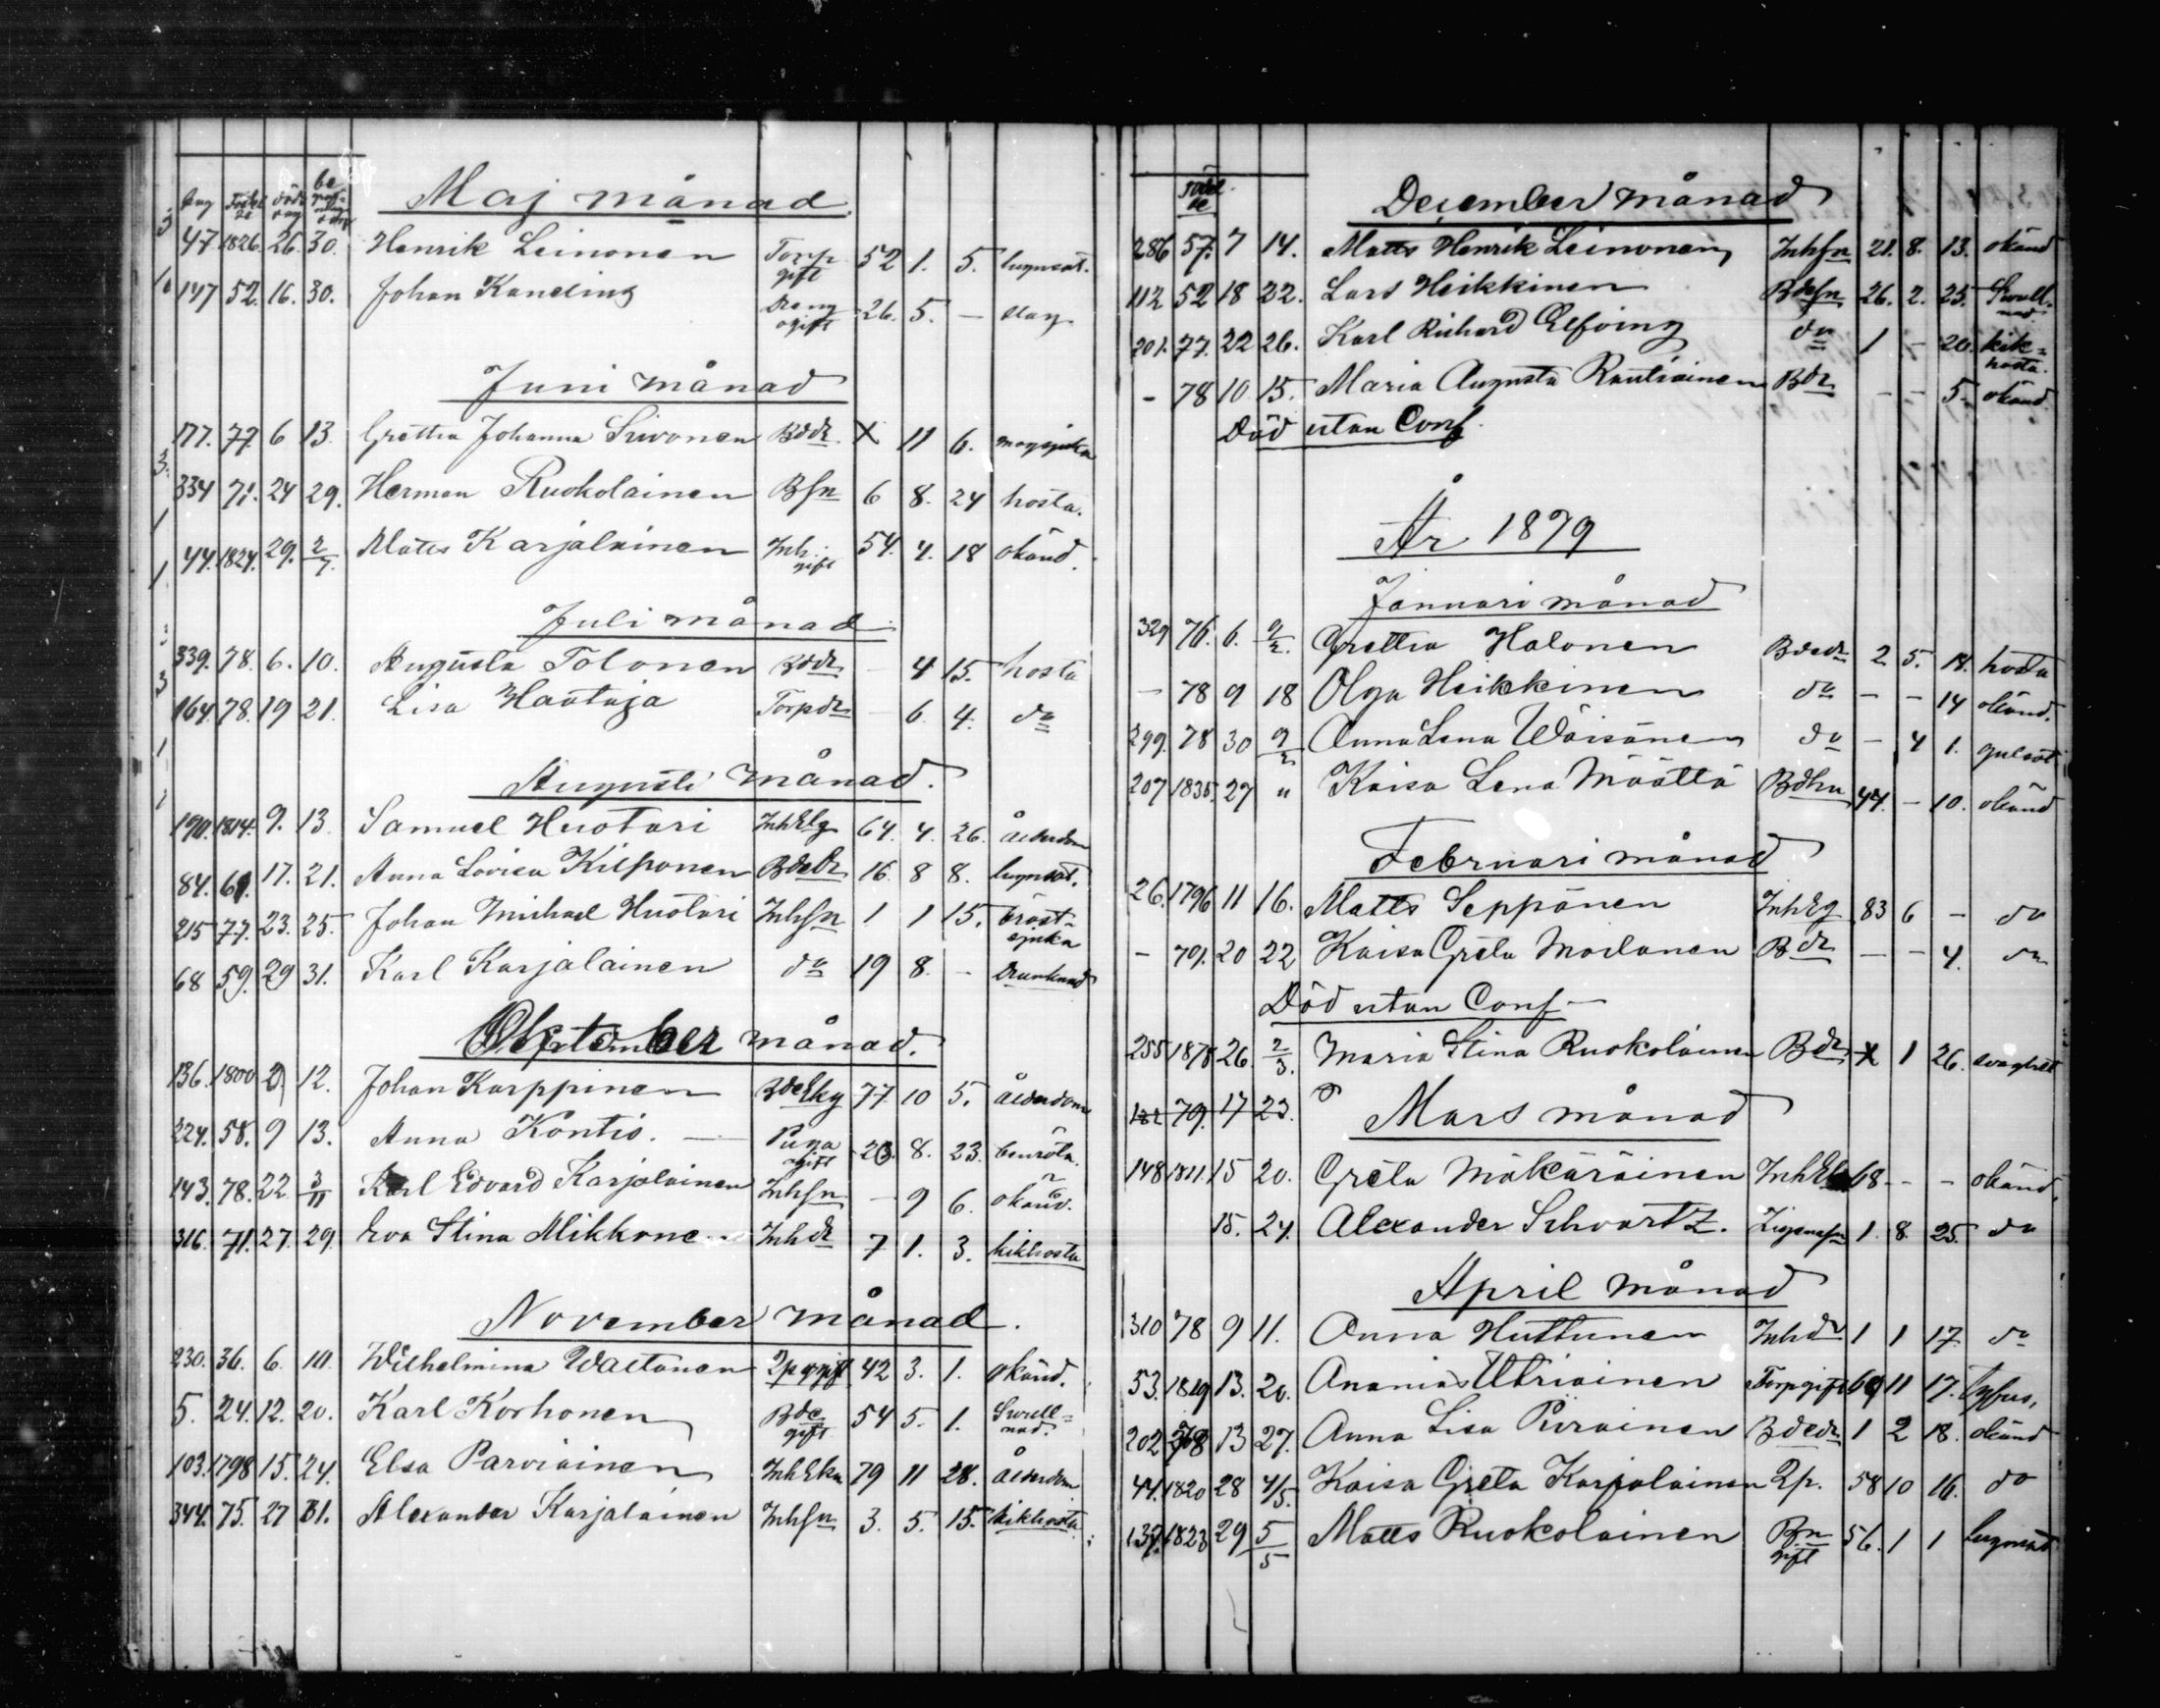 Maj månad
47 1826. 26. 30. Henrik Leinonen Torp gift 52 1. 5. lugnsot.
147 52. 16. 30. Johan Kaneding Dreng ogift 26. 5. — slag
Juni månad
177. 77. 6 13. Grettia Johanna Siwonen Bdedr X 11 6. magsjuka
334 71. 24 29. Herman Ruokolainen Bsn 6 8. 24 hosta.
44. 1824. 29. 2/7. Matts Karjalainen Inh. gift 54. 4. 18 okänd.
Juli månad
339. 78. 6. 10. Augusta Tolonen Bdedr — 4 15. hosta
164. 78. 19 21. Lisa Haataja Torpdr — 6 4. do
Augusti månad.
190. 1814. 9. 13 Samuel Huotari InhElg 64. 4. 26. ålderdom
84. 61. 17. 21. Anna Lovisa Kilponen Bdedr 16 8 8. lugnsot.
215 77. 23. 25. Johan Michael Huotari Inhsn 1 1 15. bröstsjuka
68 59. 29 31. Karl Karjalainen do 19 8. — Drunknad
Oktober månad.
136. 1800 2. 12. Johan Karppinen BdeEkg 77 10 5. ålderdom
224. 58. 9 13. Anna Kontio. — Piga ogift 20. 8. 23. benröta.
143. 78. 22 3/11 Karl Edvard Karjalainen Inhsn — 9 6. okänd.
316. 71. 27. 29. Eva Stina Mikkone Inhdr 7 1. 3. kikhosta
November månad.
230. 36. 6. 10. Wilhelmina Waltanen Qp gift 42 3. 1. okänd.
5. 24. 12. 20. Karl Korhonen Bde gift 54 5. 1. Svullnad.
103. 1798 15. 24. Elsa Parviainen InhEka 79 11 28. ålderdom
344. 75. 27 31. Alexander Karjalainen Inhsn 3. 5. 15. kikhosta
December månad
286 57. 7 14. Matts Henrik Leinonen Inhsn 21. 8. 13. okänd
112 52 18 22. Lars Heikkinen Bdesn 26. 2. 25. Svullnad.
201. 77. 22 26. Karl Richard Elfving do 1 — 20. kikhosta.
— 78 10 15. Maria Augusta Rautiainen Bdr — — 5. okänd.
Död utan Conf.
År 1879
Januari månad
329 76. 6. 9/2. Grettia Halonen Bdedr 2 5. 18. hosta
— 78 9 18 Olga Heikkinen do — — 14 okänd.
299. 78 30 9/2 Anna Lena Wäisänen do — 4 1. gulsot
207 1835. 27 " Kaisa Lena Määttä Bdhu 44. — 10. okänd
Februari månad
26. 1796 11 16. Matts Seppänen InhEg 83 6 — do
— 79. 20 22 Kaisa Greta Moilanen Bdr — — 4. do
Död utan Conf
255 1878 26. 2/3. Maria Stina Ruokolainen Bdr X 1 26. svaghet
79. 17 23.
Mars månad
148 1811. 15 20. Greta Mäkäräinen InhE 68 — — okänd.
15. 24. Alexander Schvartz. Zigenarsn 1. 8. 25. do
April månad
310 78 9 11. Anna Huttunen Inhdr 1 1 17. do
53. 1819 13. 20. Ananias Utriainen Torpgift 69 11 17. tyfus.
202 78 13 27. Anna Lisa Piirainen Bdedr 1 2 18. okänd
44. 1820 28 4/5. Kaisa Greta Karjalainen Qp. 58 10 16. do
137. 1823 29 5/5 Matts Ruokolainen Bn gift 56. 1 1 lugnsot